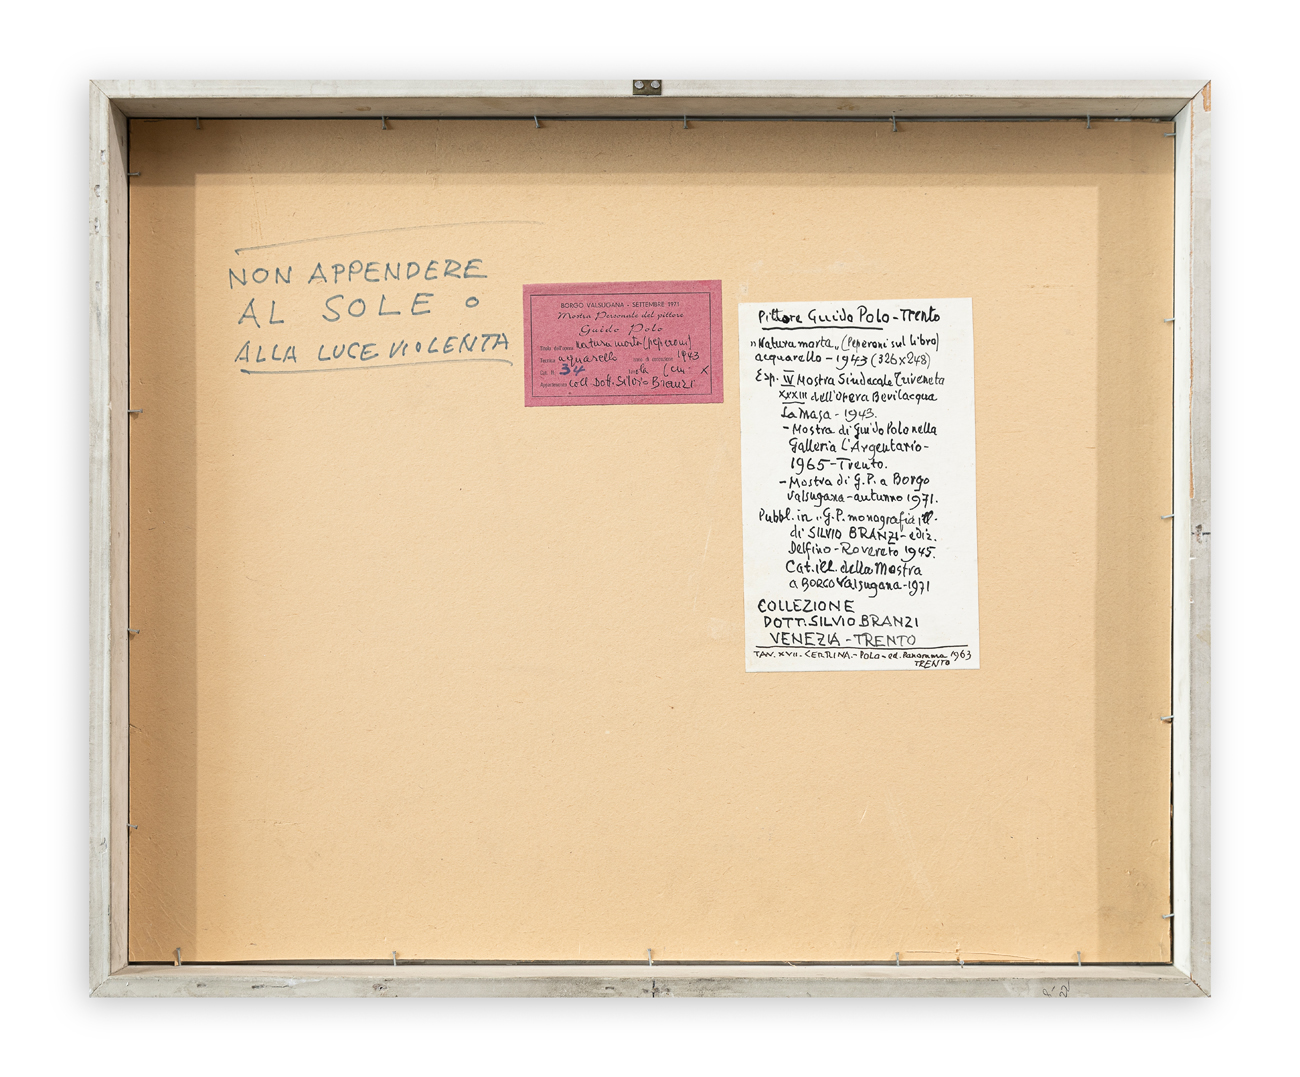 NON APPENDERE
AL SOLE O
ALLA LUCE VIOLENTA
BORGO VALSUGANA - SETTEMBRE 1971
Mostra Personale del pittore
Guido Polo
Titolo dell'opera natura morta (peperoni)
Tecnica aquarello anno di esecuzione 1943
Cat. N. 34 (cm. X
Appartenente coll Dott. Silvio Branzi
Pittore Guido Polo - Trento
"Natura morta" (Peperoni sul libro)
acquarello - 1943 (326x248)
Esp. IV Mostra Sindacale Triveneta
XXXIII dell'Opera Bevilacqua
La Masa - 1943.
- Mostra di Guido Polo nella
Galleria L'Argentario -
1965 - Trento.
- Mostra di G.P. a Borgo
Valsugana - autunno 1971.
Pubbl. in "G.P. monografia ill.
di SILVIO BRANZI - ediz.
Delfino - Rovereto 1945.
Cat. ill. della Mostra
a BORGO Valsugana - 1971
COLLEZIONE
DOTT. SILVIO BRANZI
VENEZIA - TRENTO
TAV. XVII. - POLO - ed. Panorama 1963
TRENTO